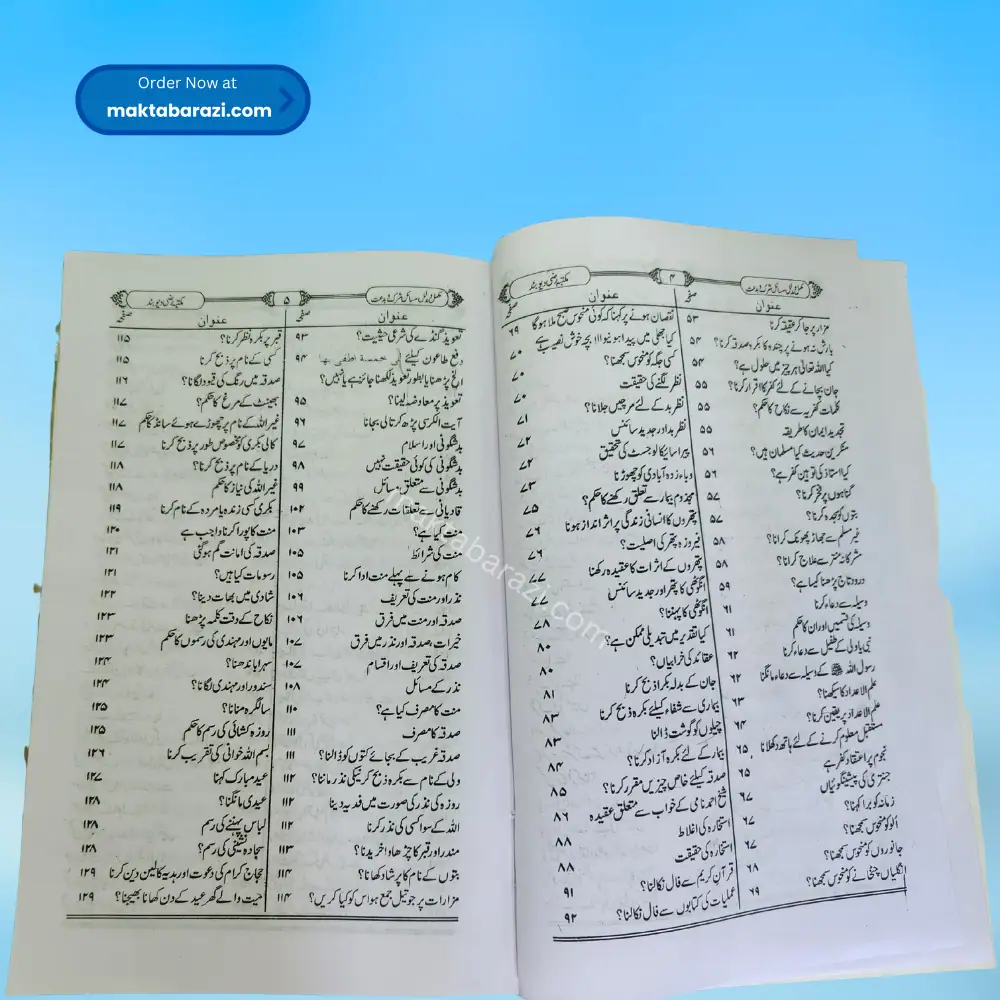 Order Now at
maktabarazi.com
مکمل و مدلل مسائل شرک و بدعت
۴
مکتبہ رضی دیوبند
عنوان
صفحہ
مزار پر جا کر عقیقہ کرنا
۵۳
بارش نہ ہونے پر چندہ کا بکرہ صدقہ کرنا؟
۵۴
کیا اللہ تعالیٰ ہر چیز میں حلول ہے؟
۵۴
جان بچانے کے لئے کفر کا اقرار کرنا؟
۵۵
کلمات کفریہ سے نکاح کا حکم؟
۵۵
تجدید ایمان کا طریقہ
۵۵
منکرین حدیث کیا مسلمان ہیں؟
۵۶
کیا استاذ کی توہین کفر ہے؟
۵۶
گناہوں پر فخر کرنا؟
۵۷
بتوں کو سجدہ کرنا؟
۵۷
غیر مسلم سے جھاڑ پھونک کرانا؟
۵۸
مشرکانہ منتر سے علاج کرانا؟
۵۸
درود تاج پڑھنا کیسا ہے؟
۵۹
وسیلہ سے دعاء کرنا
۶۱
وسیلہ کی قسمیں اور ان کا حکم
۶۱
نبی یا ولی کے طفیل سے دعاء کرنا
۶۲
رسول اللہ ﷺ کے وسیلہ سے دعاء مانگنا
۶۲
علم الاعداد کا سیکھنا؟
۶۳
علم الاعداد پر یقین کرنا؟
۶۴
مستقبل معلوم کرنے کے لئے ہاتھ دکھلانا
۶۵
نجوم پر اعتقاد کفر ہے
۶۵
جنتری کی پیشینگوئیاں
۶۷
زمانہ کو برا کہنا؟
۶۷
الو کو منحوس سمجھنا؟
۶۷
جانوروں کو منحوس سمجھنا؟
۶۸
انگلیاں چٹخانے کو منحوس سمجھنا؟
۶۹
عنوان
صفحہ
نقصان ہونے پر کہنا کہ کوئی منحوس صبح ملا ہوگا
۶۹
کیا جھلی میں پیدا ہونیوالا بچہ خوش نصیب ہے
۷۰
کسی جگہ کو منحوس سمجھنا؟
۷۰
نظر لگنے کی حقیقت
۷۰
نظر بد کے لئے مرچیں جلانا؟
۷۱
نظر بد اور جدید سائنس
۷۲
پیراسائیکالوجسٹ کی تحقیق
۷۲
وباء زدہ آبادی کو چھوڑنا
۷۳
مجذوم بیمار سے تعلق رکھنے کا حکم؟
۷۵
پتھروں کا انسانی زندگی پر اثر انداز ہونا
۷۶
فیروزہ پتھر کی اصلیت؟
۷۶
پتھروں کے اثرات کا عقیدہ رکھنا
۷۷
انگوٹھی کا پتھر اور جدید سائنس
۷۷
انگوٹھی کا پہننا؟
۷۸
کیا تقدیر میں تبدیلی ممکن ہے؟
۸۰
عقائد کی خرابیاں؟
۸۰
جان کے بدلہ بکرا ذبح کرنا
۸۱
بیماری سے شفاء کیلئے بکرہ ذبح کرنا
۸۳
چیلوں کو گوشت ڈالنا
۸۳
بیمار کے لئے بکرہ آزاد کرنا؟
۸۴
صدقہ کیلئے خاص چیزیں مقرر کرنا؟
۸۵
شیخ احمد نامی کے خواب سے متعلق عقیدہ
۸۶
استخارہ کی اغلاط
۸۸
استخارہ کی حقیقت
۸۸
قرآن کریم سے فال نکالنا؟
۹۱
عملیات کی کتابوں سے فال نکالنا؟
۹۲
مکمل و مدلل مسائل شرک و بدعت
۵
مکتبہ رضی دیوبند
عنوان
صفحہ
تعویذ گنڈے کی شرعی حیثیت؟
۹۳
دفع طاعون کیلئے لی خمسة اطفی بها
۹۴
الخ پڑھنا یا بطور تعویذ لکھنا جائز ہے یا نہیں؟
تعویذ پر معاوضہ لینا؟
۹۵
آیت الکرسی پڑھ کر تالی بجانا
۹۶
بدشگونی اور اسلام
۹۷
بدشگونی کی کوئی حقیقت نہیں
۹۸
بدشگونی سے متعلق مسائل
۹۹
قادیانی سے تعلقات رکھنے کا حکم
۱۰۲
منت کیا ہے؟
۱۰۳
منت کی شرائط
۱۰۵
کام ہونے سے پہلے منت ادا کرنا
۱۰۵
نذر اور منت کی تعریف
۱۰۶
صدقہ اور منت میں فرق
۱۰۶
خیرات، صدقہ اور نذر میں فرق
۱۰۷
صدقہ کی تعریف اور اقسام
۱۰۷
نذر کے مسائل
۱۰۸
منت کا مصرف کیا ہے؟
۱۱۰
صدقہ کا مصرف
۱۱۱
صدقہ غریب کے بجائے کتوں کو ڈالنا؟
۱۱۱
ولی کے نام سے بکرہ ذبح کرنیکی نذر ماننا؟
۱۱۲
روزہ کی نذر کی صورت میں فدیہ دینا
۱۱۲
اللہ کے سوا کسی کی نذر کرنا
۱۱۲
مندر اور قبر کا چڑھاوا خریدنا؟
۱۱۳
بتوں کے نام کا پرشاد کھانا؟
۱۱۴
مزارات پر جو تیل جمع ہو اس کو کیا کریں؟
۱۱۴
عنوان
صفحہ
قبر پر بکرہ نظر کرنا؟
۱۱۵
کسی کے نام پر ذبح کرنا
۱۱۵
صدقہ میں رنگ کی قیود لگانا؟
۱۱۶
بھینٹ کے مرغ کا حکم؟
۱۱۷
غیر اللہ کے نام پر چھوڑے ہوئے سانڈ کا حکم
۱۱۷
کالی بکری کو مخصوص طور پر ذبح کرنا
۱۱۷
دریا کے نام پر ذبح کرنا؟
۱۱۸
غیر اللہ کی نیاز کا حکم
۱۱۸
بکری کسی زندہ یا مردہ کے نام کرنا
۱۱۹
منت کا پورا کرنا واجب ہے
۱۲۰
صدقہ کی امانت گم ہوگئی
۱۲۱
رسومات کیا ہیں؟
۱۲۱
شادی میں بھات دینا؟
۱۲۲
نکاح کے وقت کلمہ پڑھنا
۱۲۳
مایوں اور مہندی کی رسموں کا حکم
۱۲۳
سہرا باندھنا؟
۱۲۴
سندور اور مہندی لگانا؟
۱۲۴
سالگرہ منانا؟
۱۲۵
روزہ کشائی کی رسم کا حکم
۱۲۵
بسم اللہ خوانی کی تقریب کرنا
۱۲۶
عید مبارک کہنا
۱۲۷
عیدی مانگنا؟
۱۲۸
لباس پہننے کی رسم
۱۲۸
سجادہ نشینی کی رسم؟
۱۲۸
حجاج کرام کی دعوت اور ہدیہ کا لین دین کرنا
۱۲۹
میت والے گھر عید کے دن کھانا بھیجنا؟
۱۲۹
maktabarazi.com